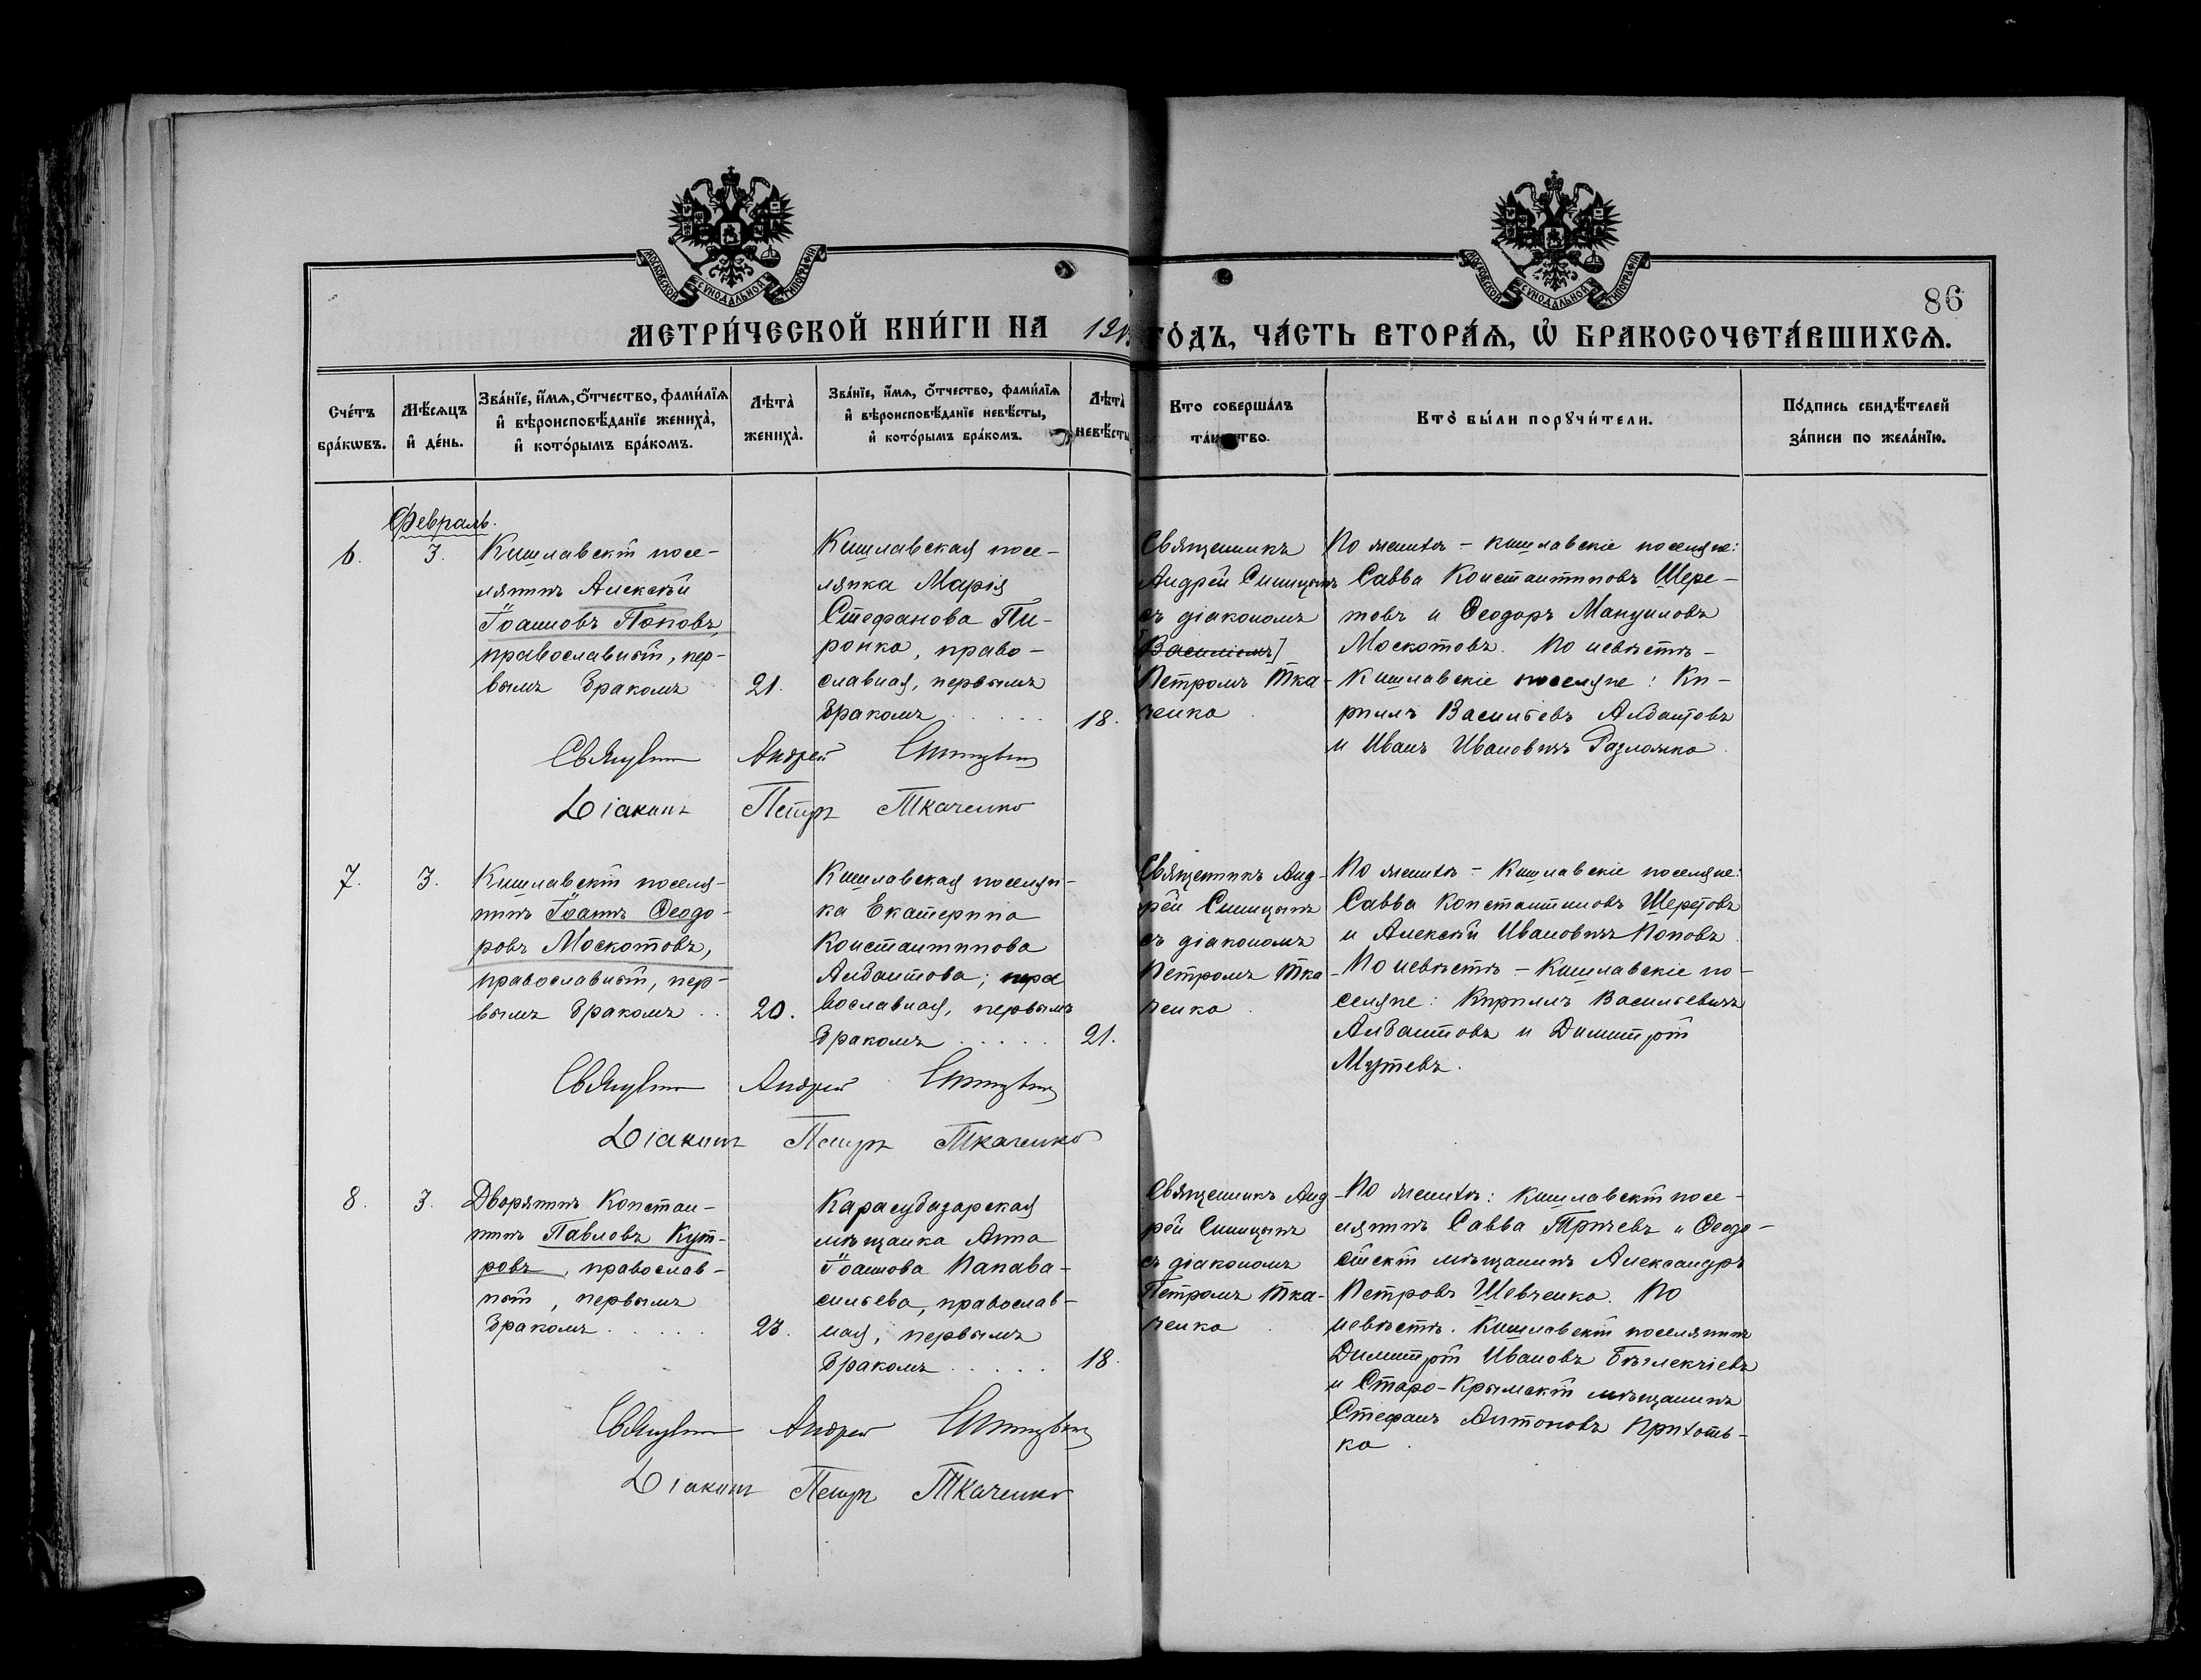 МОСКОВСКОЙ СУНОДАЛЬНОЙ ТИПОГРАФІИ
МОСКОВСКОЙ СУНОДАЛЬНОЙ ТИПОГРАФІИ
86
МЕТРИ́ЧЕСКОЙ КНИ́ГИ НА
ГО́ДЪ, ЧА́СТЬ ВТОРА́Я, Ѽ БРАКОСОЧЕТА́ВШИХСЯ.
Сче́тъ бра́кѡвъ.
Мѣ́сяцъ и де́нь.
Зва́нїе, и́мя, ѻ́тчество, фами́лїя и вѣроисповѣ́данїе жениха̀, и кото́рымъ бра́комъ.
Лѣта̀ жениха̀.
Зва́нїе, и́мя, ѻ́тчество, фами́лїя и вѣроисповѣ́данїе невѣ́сты, и кото́рымъ бра́комъ.
Лѣта̀ невѣ́сты
Кто соверша́лъ та́инство.
Кто̀ бы́ли порꙋчи́тели.
По́дпись свидѣ́телей за́писи по жела́нїю.
Февраль.
6.
3.
Кишлавскій посе-
лянинъ Алексѣй
Іоанновъ Поповъ,
православный, пер-
вымъ бракомъ
21.
Кишлавская посе-
лянка Марія
Стефанова Пи-
ронко, право-
славная, первымъ
бракомъ
18.
Священникъ
Андрей Синицынъ
съ діакономъ
[Василіемъ]
Петромъ Тка-
ченко
По женихѣ - кишлавскіе поселяне:
Савва Константиновъ Шере-
товъ и Ѳеодоръ Мануиловъ
Москотовъ. По невѣстѣ -
Кишлавскіе поселяне: Ки-
риллъ Васильевъ Албантовъ
и Иванъ Ивановичъ
Священникъ Андрей Синицынъ
Діаконъ Петръ Ткаченко
7.
3.
Кишлавскій поселя-
нинъ Іоаннъ Ѳеодо-
ровъ Москотовъ,
православный, пер-
вымъ бракомъ
20.
Кишлавская поселян-
ка Екатерина
Константинова
Албантова; пра
вославная, первымъ
бракомъ
21.
Священникъ Анд-
рей Синицынъ
съ діакономъ
Петромъ Тка-
ченко
По женихѣ - Кишлавскіе поселяне:
Савва Константиновъ Шеретовъ
и Алексѣй Ивановичъ Поповъ
По невѣстѣ - Кишлавскіе по-
селяне: Кириллъ Васильевичъ
Албантовъ и Димитрій
Священникъ Андрей Синицынъ
Діаконъ Петръ Ткаченко
8.
3.
Дворянинъ Констан-
тинъ Павловъ Кут-
ровъ, православ-
ный, первымъ
бракомъ
23.
Карасубазарская
мѣщанка Анна
Іоаннова Папава-
сильева, православ-
ная, первымъ
бракомъ
18.
Священникъ Анд-
рей Синицынъ
съ діакономъ
Петромъ Тка-
ченко
По женихѣ: кишлавскій посе-
лянинъ Савва Тричевъ и Ѳеодо-
сійскій мѣщанинъ Александръ
Петровъ Шевченко. По
невѣстѣ. Кишлавскій поселянинъ
Димитрій Ивановъ
и Старо-Крымскій мѣщанинъ
Стефанъ Антоновъ Прихоть-
ко.
Священникъ Андрей Синицынъ
Діаконъ Петръ Ткаченко